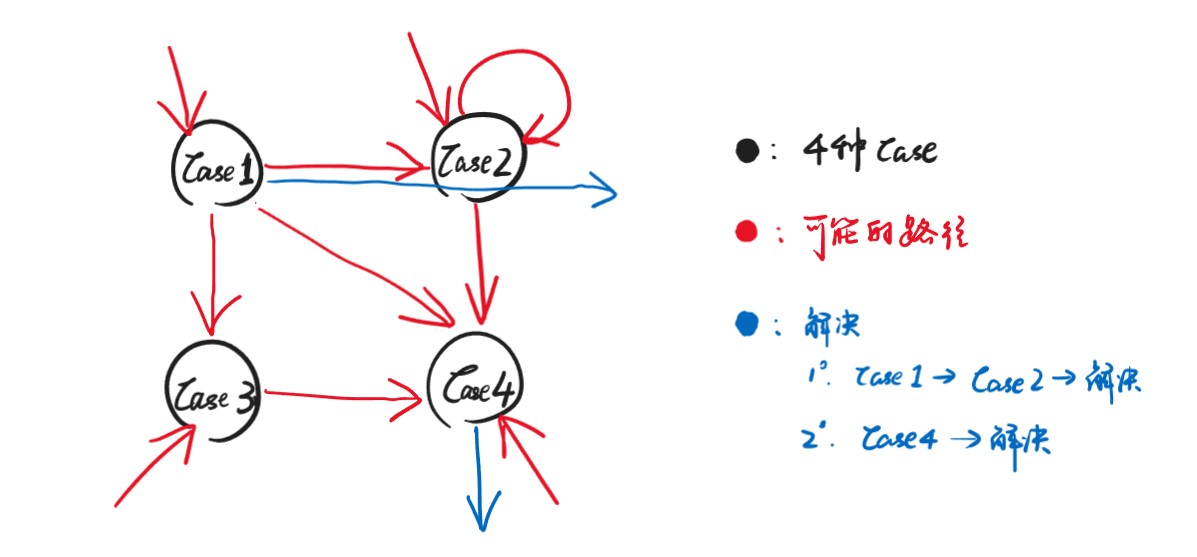 Case 1
Case 2
Case 3
Case 4
: 4种 Case
: 可能的路径
: 解决
1°. Case 1 → Case 2 → 解决
2°. Case 4 → 解决